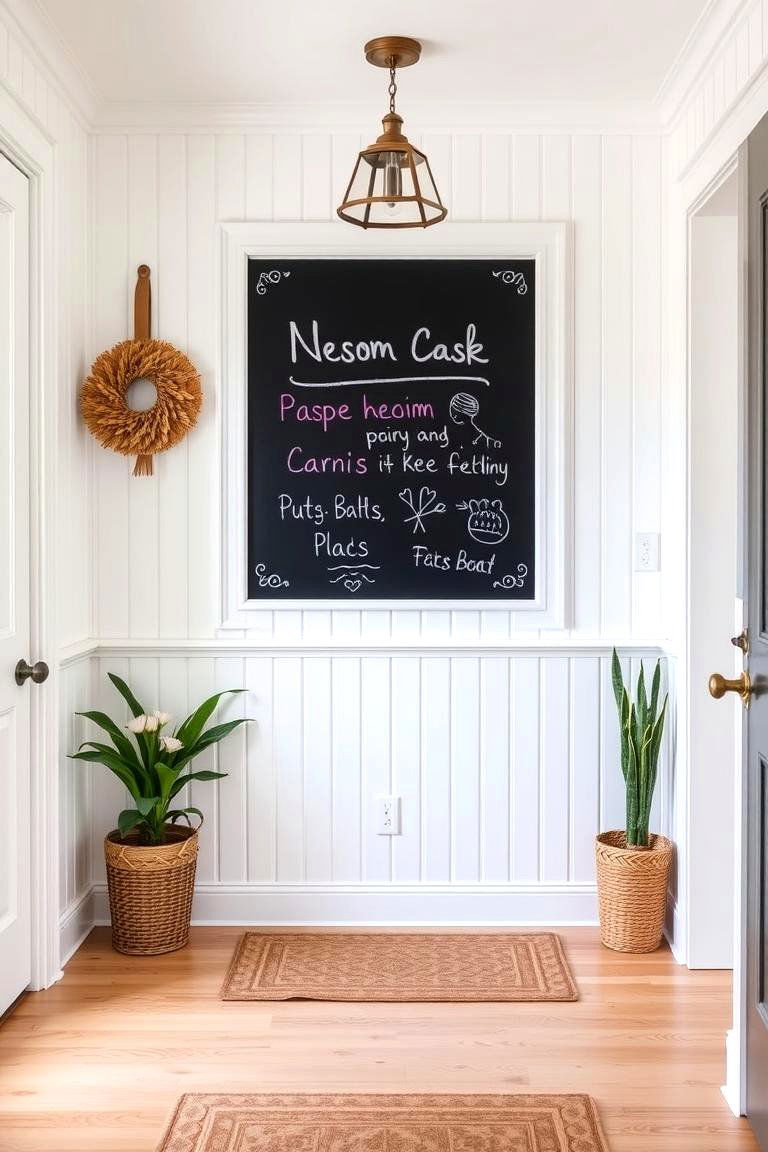 Nesom Cask
Paspe heoim
poiry and
Carnis it Kee fetliny
Puts. Balts,
Placs
Fats Boat